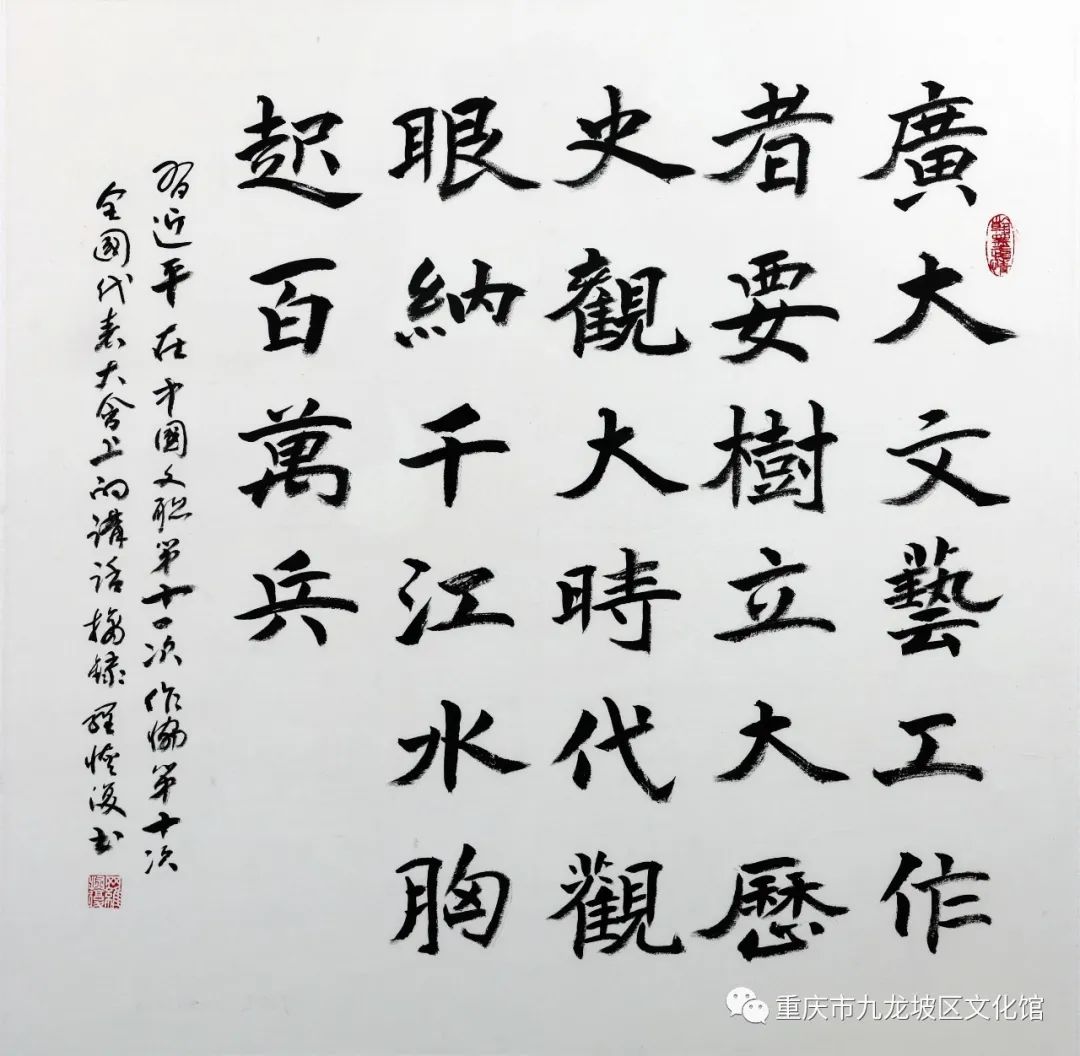 廣大文藝工作
者要樹立大歷
史觀大時代觀
眼納千江水胸
起百萬兵
習近平在中國文聯第十一次作協第十次
全國代表大會上的講話摘錄 羅恢復书
重庆市九龙坡区文化馆